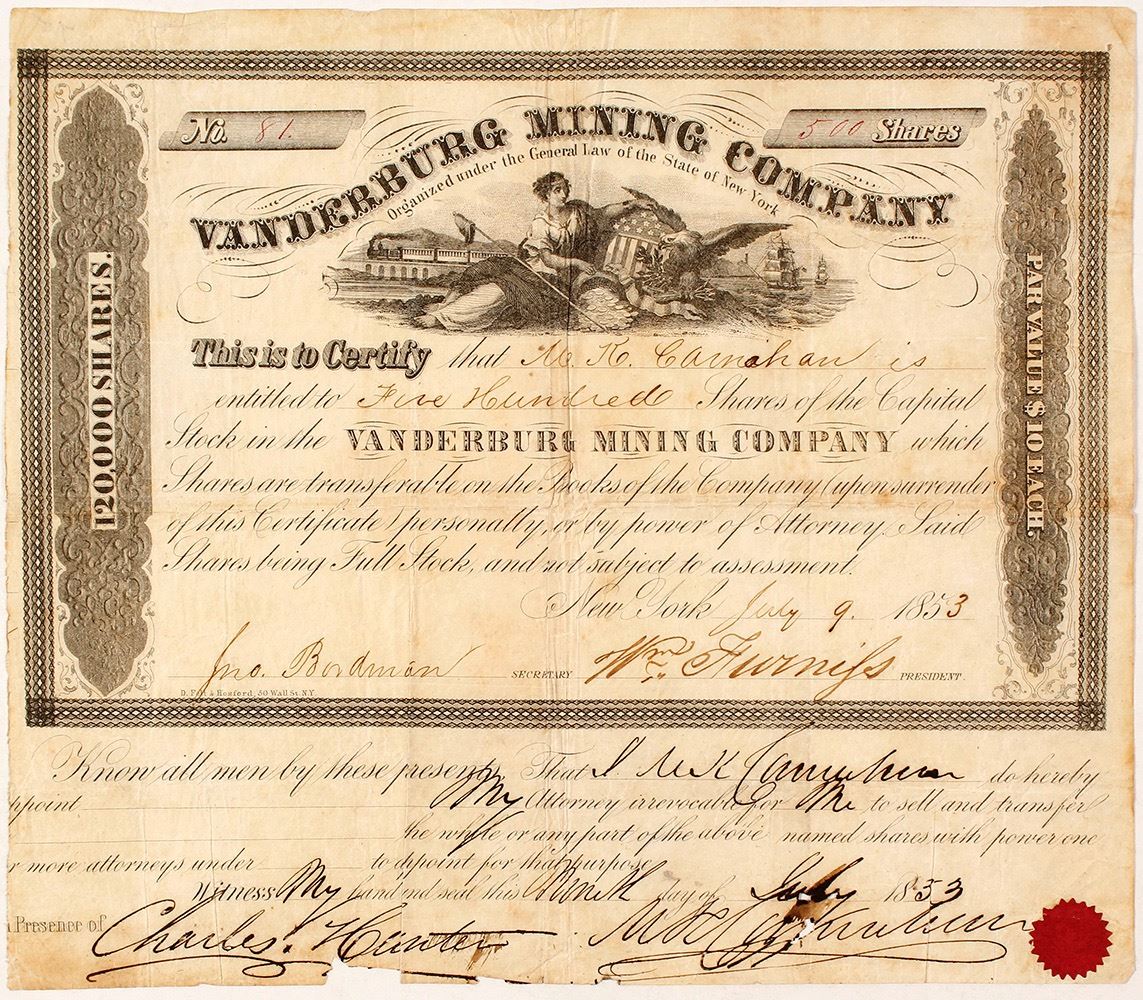 No. 81.
500 Shares
VANDERBURG MINING COMPANY
Organized under the General Law of the State of New York
120,000 SHARES.
PAR VALUE $10 EACH.
This is to Certify that M. K. Carnahan is
entitled to Five Hundred Shares of the Capital
Stock in the VANDERBURG MINING COMPANY which
Shares are transferable on the Books of the Company (upon surrender
of this Certificate) personally, or by power of Attorney. Said
Shares being Full Stock, and not subject to assessment.
New York July 9. 1853
Jno. Bordman SECRETARY Wm. Furniss PRESIDENT.
D. Felt & Hosford, 50 Wall St. N.Y.
Know all men by these presents That I. M K Carnahan do hereby
ppoint My Attorney irrevocable for Me to sell and transfer
the whole or any part of the above named shares with power one
r more attorneys under to appoint for that purpose
Witness My hand and seal this Ninth day of July 1853
Presence of
Charles Hunter M K Carnahan